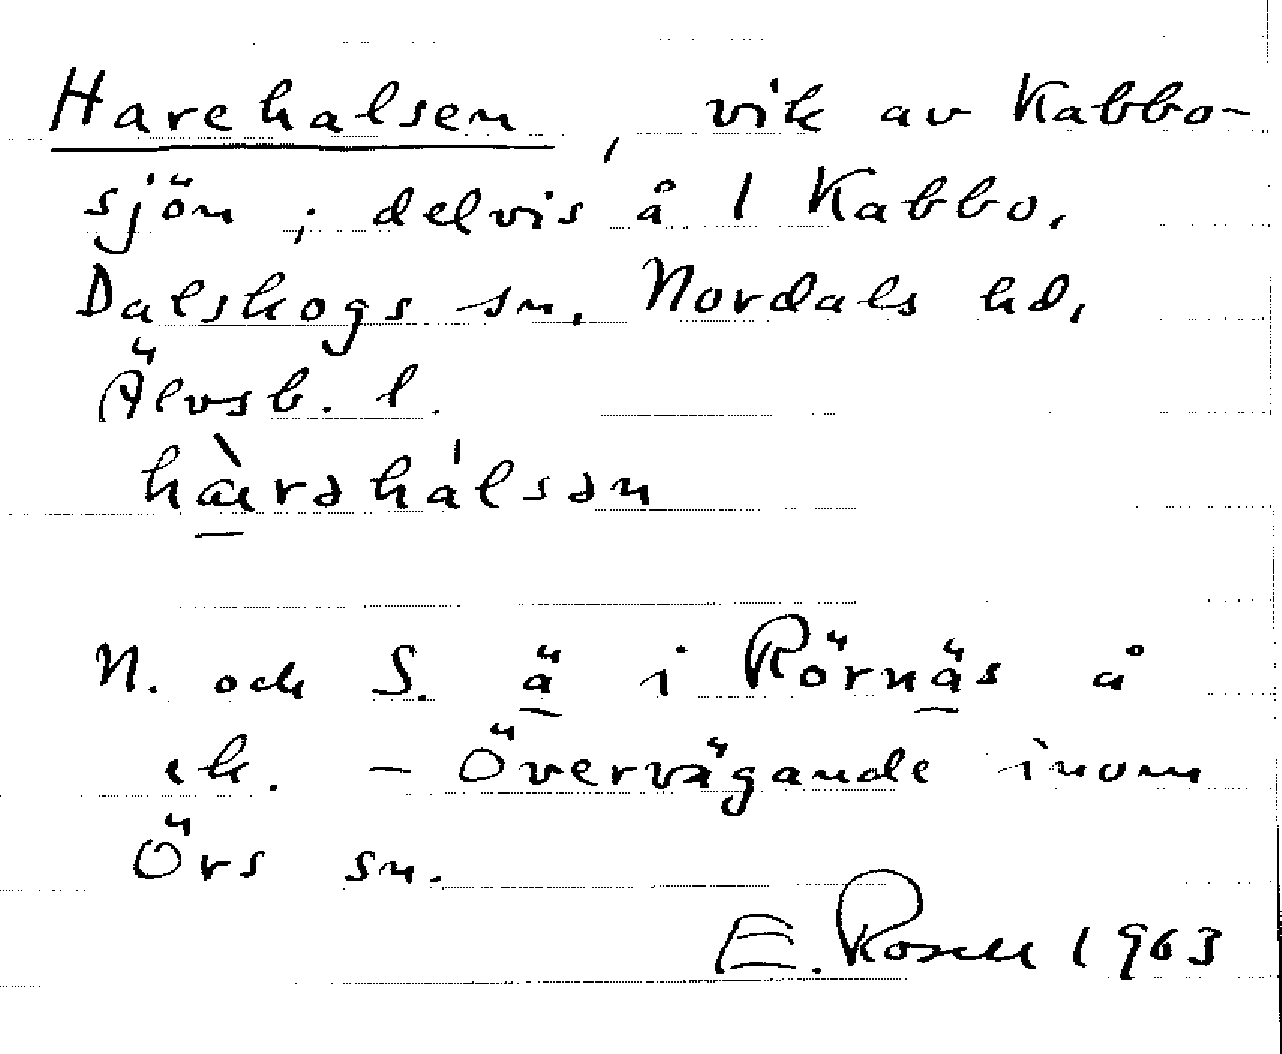 Harehalsen, vik av Kabbo-
sjön; delvis å 1 Kabbo,
Dalskogs sn, Nordals hd,
Älvsb. l.
hæ̀rəhálsən
N. och S. ä i Rörnäs å
ek. – Övervägande inom
Örs sn.
E. Rosell 1963